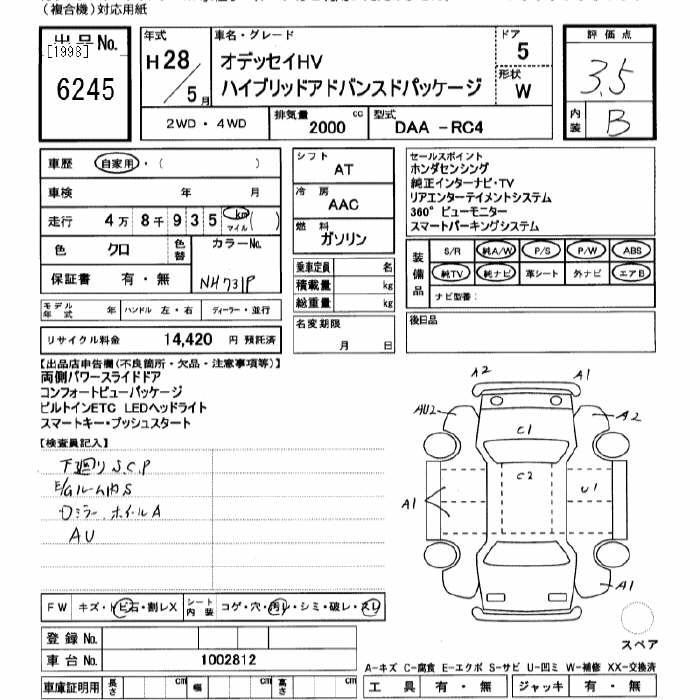 (複合機)対応用紙
出品No.
[1998]
6245
年式
H 28
5月
車名・グレード
オデッセイHV
ハイブリッドアドバンスドパッケージ
ドア
5
形状
W
評価点
3.5
内装
B
2WD・4WD
排気量
2000
cc
型式
DAA -RC4
車歴
自家用・( )
車検 年 月
走行 4万 8千 9 3 5 km マイル ( )
色 クロ
色替
カラーNo.
NH731P
保証書 有・無
モデル年式 年
ハンドル 左・右
ディーラー・並行
リサイクル料金 14,420 円 預託済
シフト
AT
冷房
AAC
燃料
ガソリン
乗車定員 名
積載量 kg
総重量 kg
名変期限
月 日
セールスポイント
ホンダセンシング
純正インターナビ・TV
リアエンターテイメントシステム
360°ビューモニター
スマートパーキングシステム
装備品
S/R 純A/W P/S P/W ABS
純TV 純ナビ 革シート 外ナビ エアB
ナビ型番:
後日品
【出品店申告欄(不良箇所・欠品・注意事項等)】
両側パワースライドドア
コンフォートビューパッケージ
ビルトインETC LEDヘッドライト
スマートキー・プッシュスタート
【検査員記入】
下廻り S.C.P
E/Gルーム内 S
ロミラー、ホイルA
AU
A2 A1
AU2 A2
C1
C2
A1 U1
A1
スペア
FW キズ・トビ石・割レX
シート内装 コゲ・穴・汚レ・シミ・破レ・スレ
登録No.
車台No. 1002812
車庫証明用 長さ cm 幅 cm 高さ cm
A-キズ C-腐食 E-エクボ S-サビ U-凹ミ W-補修 XX-交換済
工具 有・無 ジャッキ 有・無